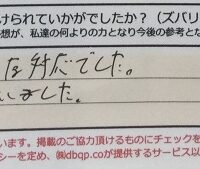 けられていかがでしたか？（ズバリ
想が、私達の何よりの力となり今後の参考とな
な対応でした。
しました。
います。掲載のご協力頂けるものにチェックを
シーを定め、㈱dbqp.coが提供するサービス以